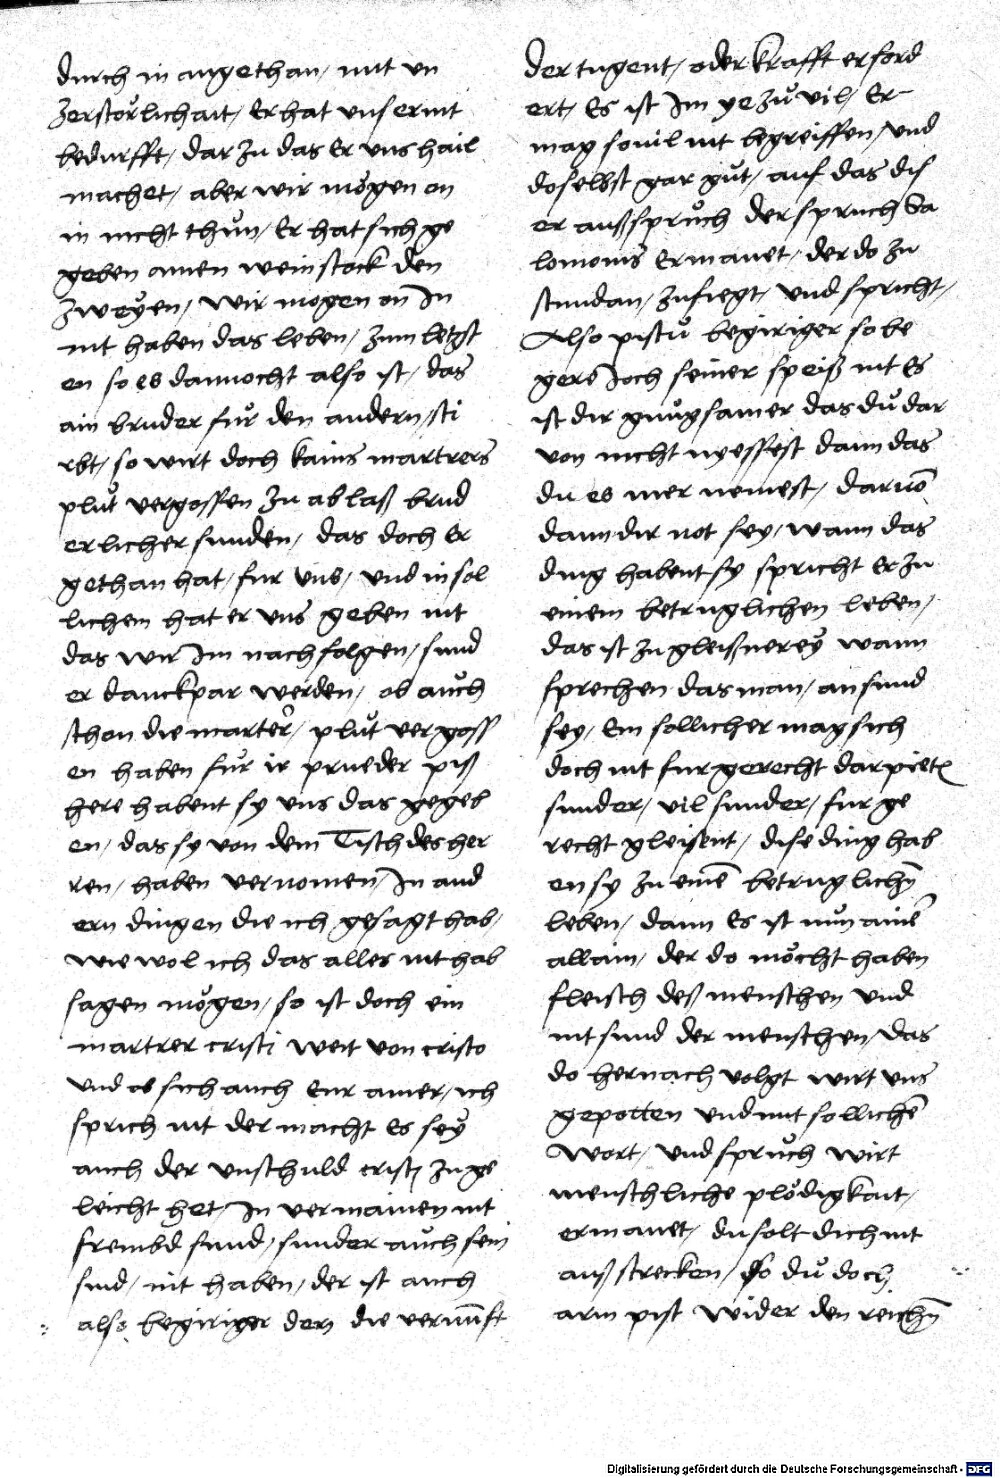 durch in angethan / mit vn
zerstoͤrlichait / Er hat vnser nit
bedurfft / dar zu das Er vns hail
machet / aber wir moͤgen on
in nicht thuͦn / Er hat sich ge
geben ainen weinstock den
zweyen / wir mogen on In
nit haben das leben / zum letzst
en so es dannocht also ist / das
ain bruder fuͤr den andern / sti
rbt / so wirt doch kains martrers
pluͦt vergossen zu ablaß brud
erlicher sunden / das doch Er
gethan hat / fur vns / vnd in sol
lichem hat er vns geben nit
das wir Im nachfolgen / sund
er danckpar werden / ob auch
schon die marter / pluͦt vergoss
en haben fuͤr ir prueder piß
here habent sy vns das gegeb
en / das sy von dem Tisch des her
ren / haben vernomen / In and
ern dingen die ich gesagt hab /
wie wol ich das alles nit hab
sagen moͤgen / so ist doch ein
martrer cristi weit von cristo
vnd ob sich auch Eur ainer / ich
sprich nit der macht Es sey
auch der vnschuld cristi zu ge
leicht het / In vermainen nit
frembd sund / sunder auch sein
sind / nit haben / der ist auch
also begiriger den die vernūft
der tugent / oder krafft erford
ert / Es ist Im ye zuͦ vil / Er
mag souil nit begreiffen / vnd
doselbst gar guͦt / auf das dis
er außspruͦch der spruch Sa
lomonis Ermanet / der do zu
stundan / zufiegt / vnd spricht /
Also pistu begiriger so be
gere Joch seiner speiß nit Es
ist dir gnuͦgsamer das du dar
von nicht nyessest dann das
du es mer nemest / daruō
dann dir not sey / wann das
ding habent sy spricht Er zu
einem betruglichen leben /
das ist zu gleißnerey wann
sprechen das man / an sund
sey / Ein sollicher mag sich
doch nit fur gerecht darpieten
sunder / vil sunder / fur ge
recht gleisent / dise ding hab
en sy zu einē betruglichn̄
leben / dann Es ist nun ainē
allain / der do moͤcht haben
fleisch deß menschen vnd
nit sund der menschen / das
do hernach volgt wirt vns
gepotten vnd mit sollichē
wort / vnd spruͦch wirt
menschliche ploͤdigkait /
ermanet / du solt dich nit
auß strecken / so du doch
arm pist wider den reichn̄
Digitalisierung gefördert durch die Deutsche Forschungsgemeinschaft - DFG